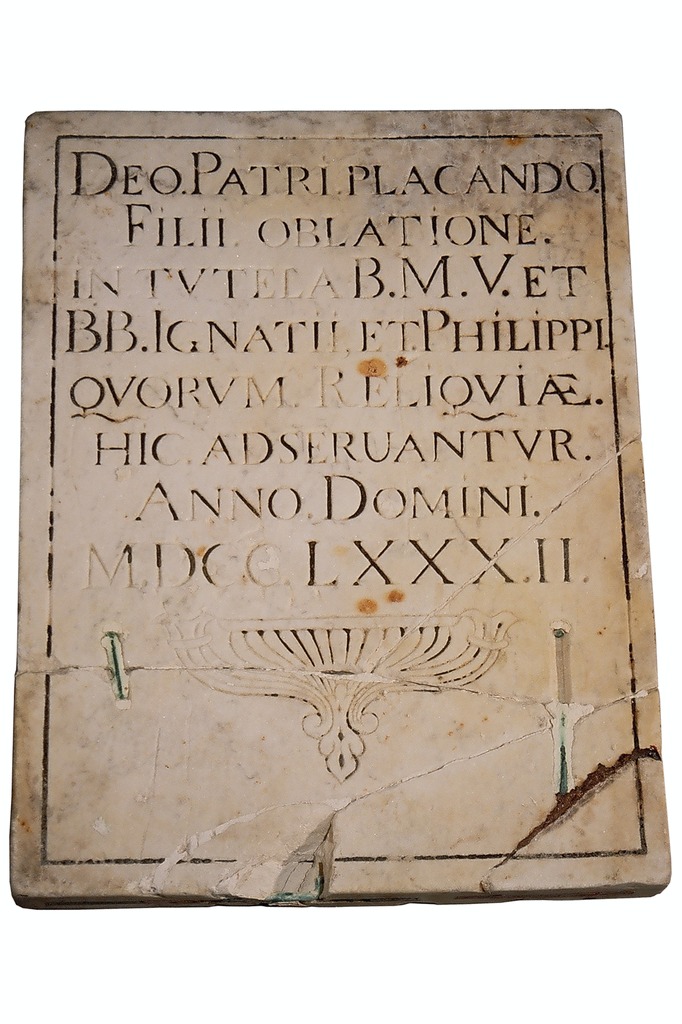 DEO.PATRI.PLACANDO.
FILII. OBLATIONE.
IN TVTELA B.M.V. ET
BB.IGNATII, ET.PHILIPPI.
QVORVM. RELIQVIÆ.
HIC. ADSERUANTVR.
ANNO. DOMINI.
M.DCC.C. LXXX.II.